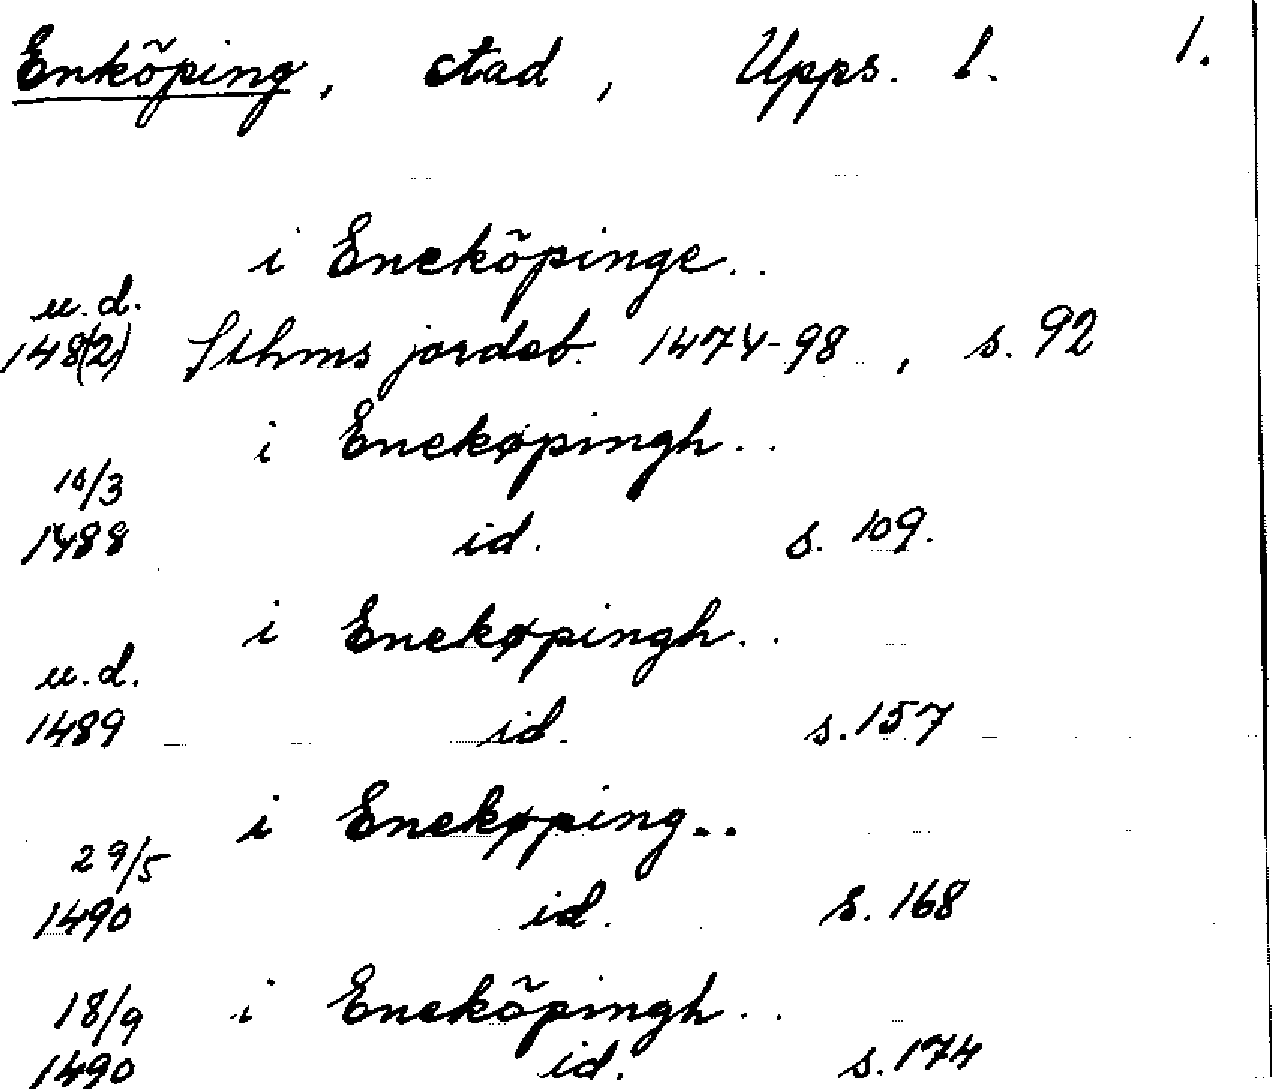 Enköping, stad, Upps. l. 1.
i Eneköpinge..
u.d.
148(2) Sthms jordeb. 1474-98, s. 92
i Enekøpingh..
10/3
1488 id. s. 109.
i Enekøpingh..
u.d.
1489 id. s. 157
i Enekøping..
29/5
1490 id. s. 168
18/9 i Eneköpingh..
1490 id. s. 174